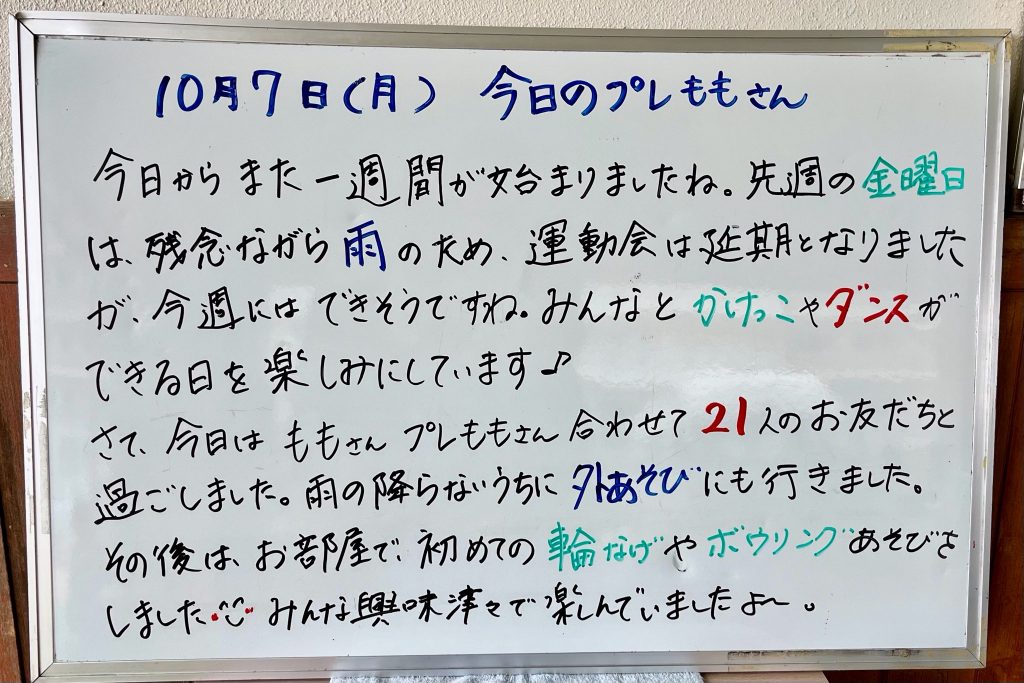 10月7日(月) 今日のプレももさん
今日からまた一週間が始まりましたね。先週の金曜日
は、残念ながら雨のため、運動会は延期となりました
が、今週にはできそうですね。みんなとかけっこやダンスが
できる日を楽しみにしています♪
さて、今日はももさんプレももさん合わせて21人のお友だちと
過ごしました。雨の降らないうちに外あそびにも行きました。
その後は、お部屋で、初めての輪なげやボウリングあそびを
しました みんな興味津々で楽しんでいましたよ〜。